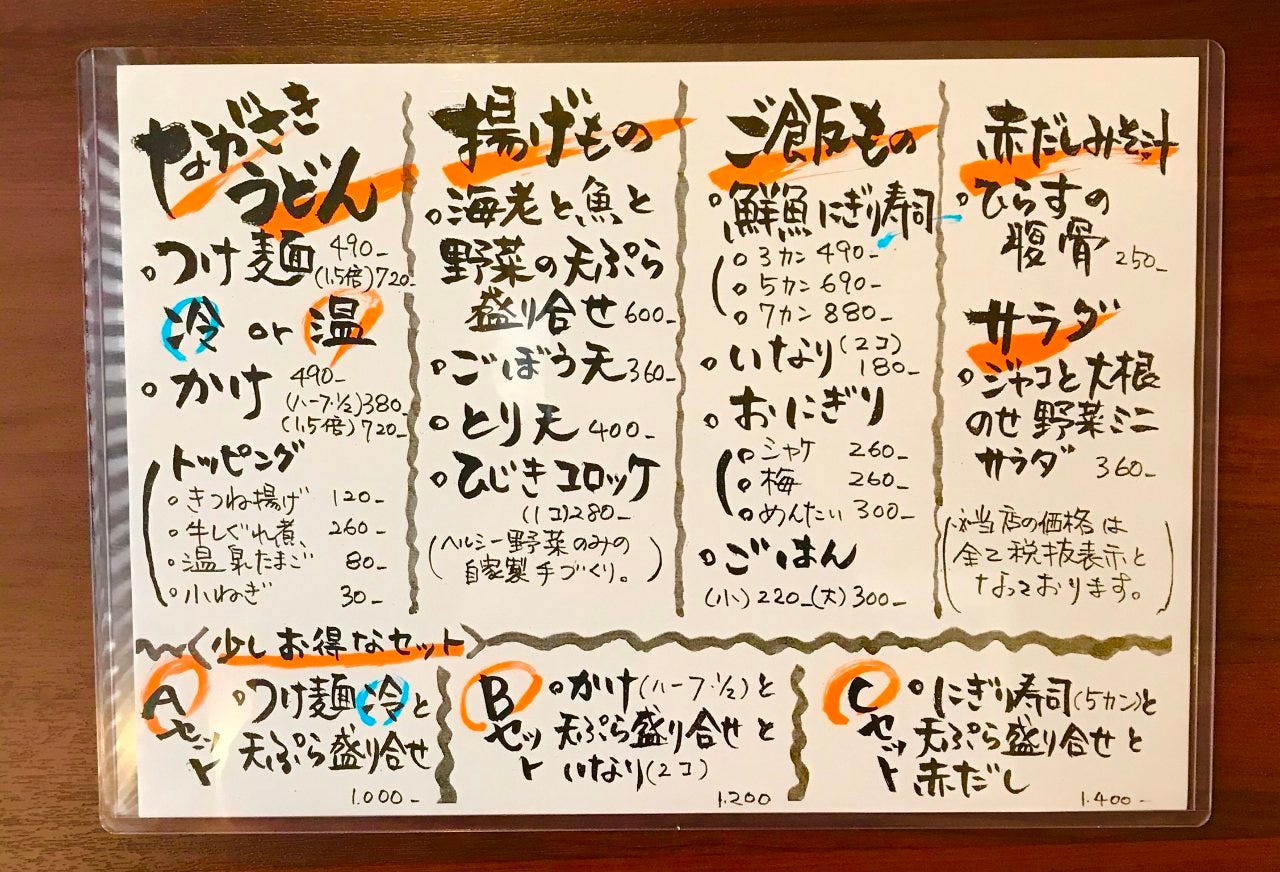 ながさき
うどん
つけ麺 490-
(1.5倍)720-
冷 or 温
かけ 490-
(ハーフ・½)380-
(1.5倍)720-
トッピング
きつね揚げ 120-
牛しぐれ煮 260-
温泉たまご 80-
小ねぎ 30-
揚げもの
海老と魚と
野菜の天ぷら
盛り合せ 600-
ごぼう天 360-
とり天 400-
ひじきコロッケ
(1コ)280-
(ヘルシー野菜のみの
自家製手づくり。)
ご飯もの
鮮魚にぎり寿司
3カン 490-
5カン 690-
7カン 880-
いなり(2コ)
180-
おにぎり
シャケ 260-
梅 260-
めんたい 300-
ごはん
(小)220-(大)300-
赤だしみそ汁
ひらすの
腹骨 250-
サラダ
ジャコと大根
のせ野菜ミニ
サラダ 360-
(※当店の価格は
全て税抜表示と
なっております。)
〈少しお得なセット〉
Aセット
つけ麺冷と
天ぷら盛り合せ
1.000-
Bセット
かけ(ハーフ・½)と
天ぷら盛り合せと
いなり(2コ)
1.200
Cセット
にぎり寿司(5カン)と
天ぷら盛り合せと
赤だし
1.400-